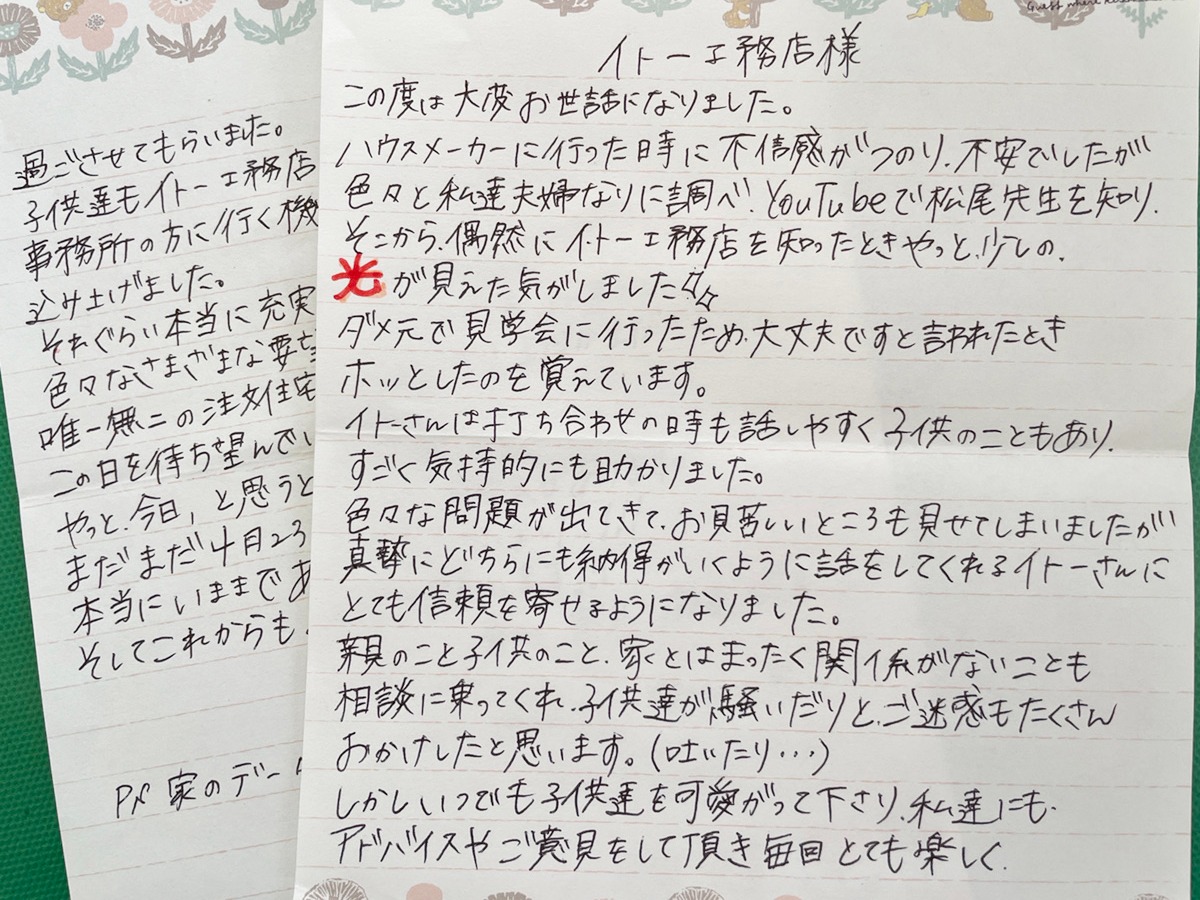 イトーエ務店様
この度は大変お世話になりました。
ハウスメーカーに行った時に不信感がつのり、不安でしたが
色々と私達夫婦なりに調べ、YouTubeで松尾先生を知り、
そこから、偶然にイトーエ務店を知ったときやっと、少しの、
光が見えた気がしました☆☆
ダメ元で見学会に行ったため、大丈夫ですと言われたとき
ホッとしたのを覚えています。
イトーさんは打ち合わせの時も話しやすく子供のこともあり、
すごく気持的にも助かりました。
色々な問題が出てきて、お見苦しいところも見せてしまいましたが
真摯にどちらにも納得がいくように話をしてくれるイトーさんに
とても信頼を寄せるようになりました。
親のこと子供のこと、家とはまったく関係がないことも
相談に乗ってくれ、子供達が騒いだりと、ご迷惑もたくさん
おかけしたと思います。(吐いたり…)
しかしいつでも子供達を可愛がって下さり、私達にも、
アドバイスやご意見をして頂き毎回とても楽しく、
過ごさせてもらいました。
子供達もイトーエ務店
事務所の方に行く機
込み上げました。
それぐらい本当に充実
色々なさまざまな要望
唯一無二の注文住宅
この日を待ち望んで
やっと、今日、と思うと
まだまだ4月23
本当にいままであ
そしてこれからも、
P.S 家のデータ